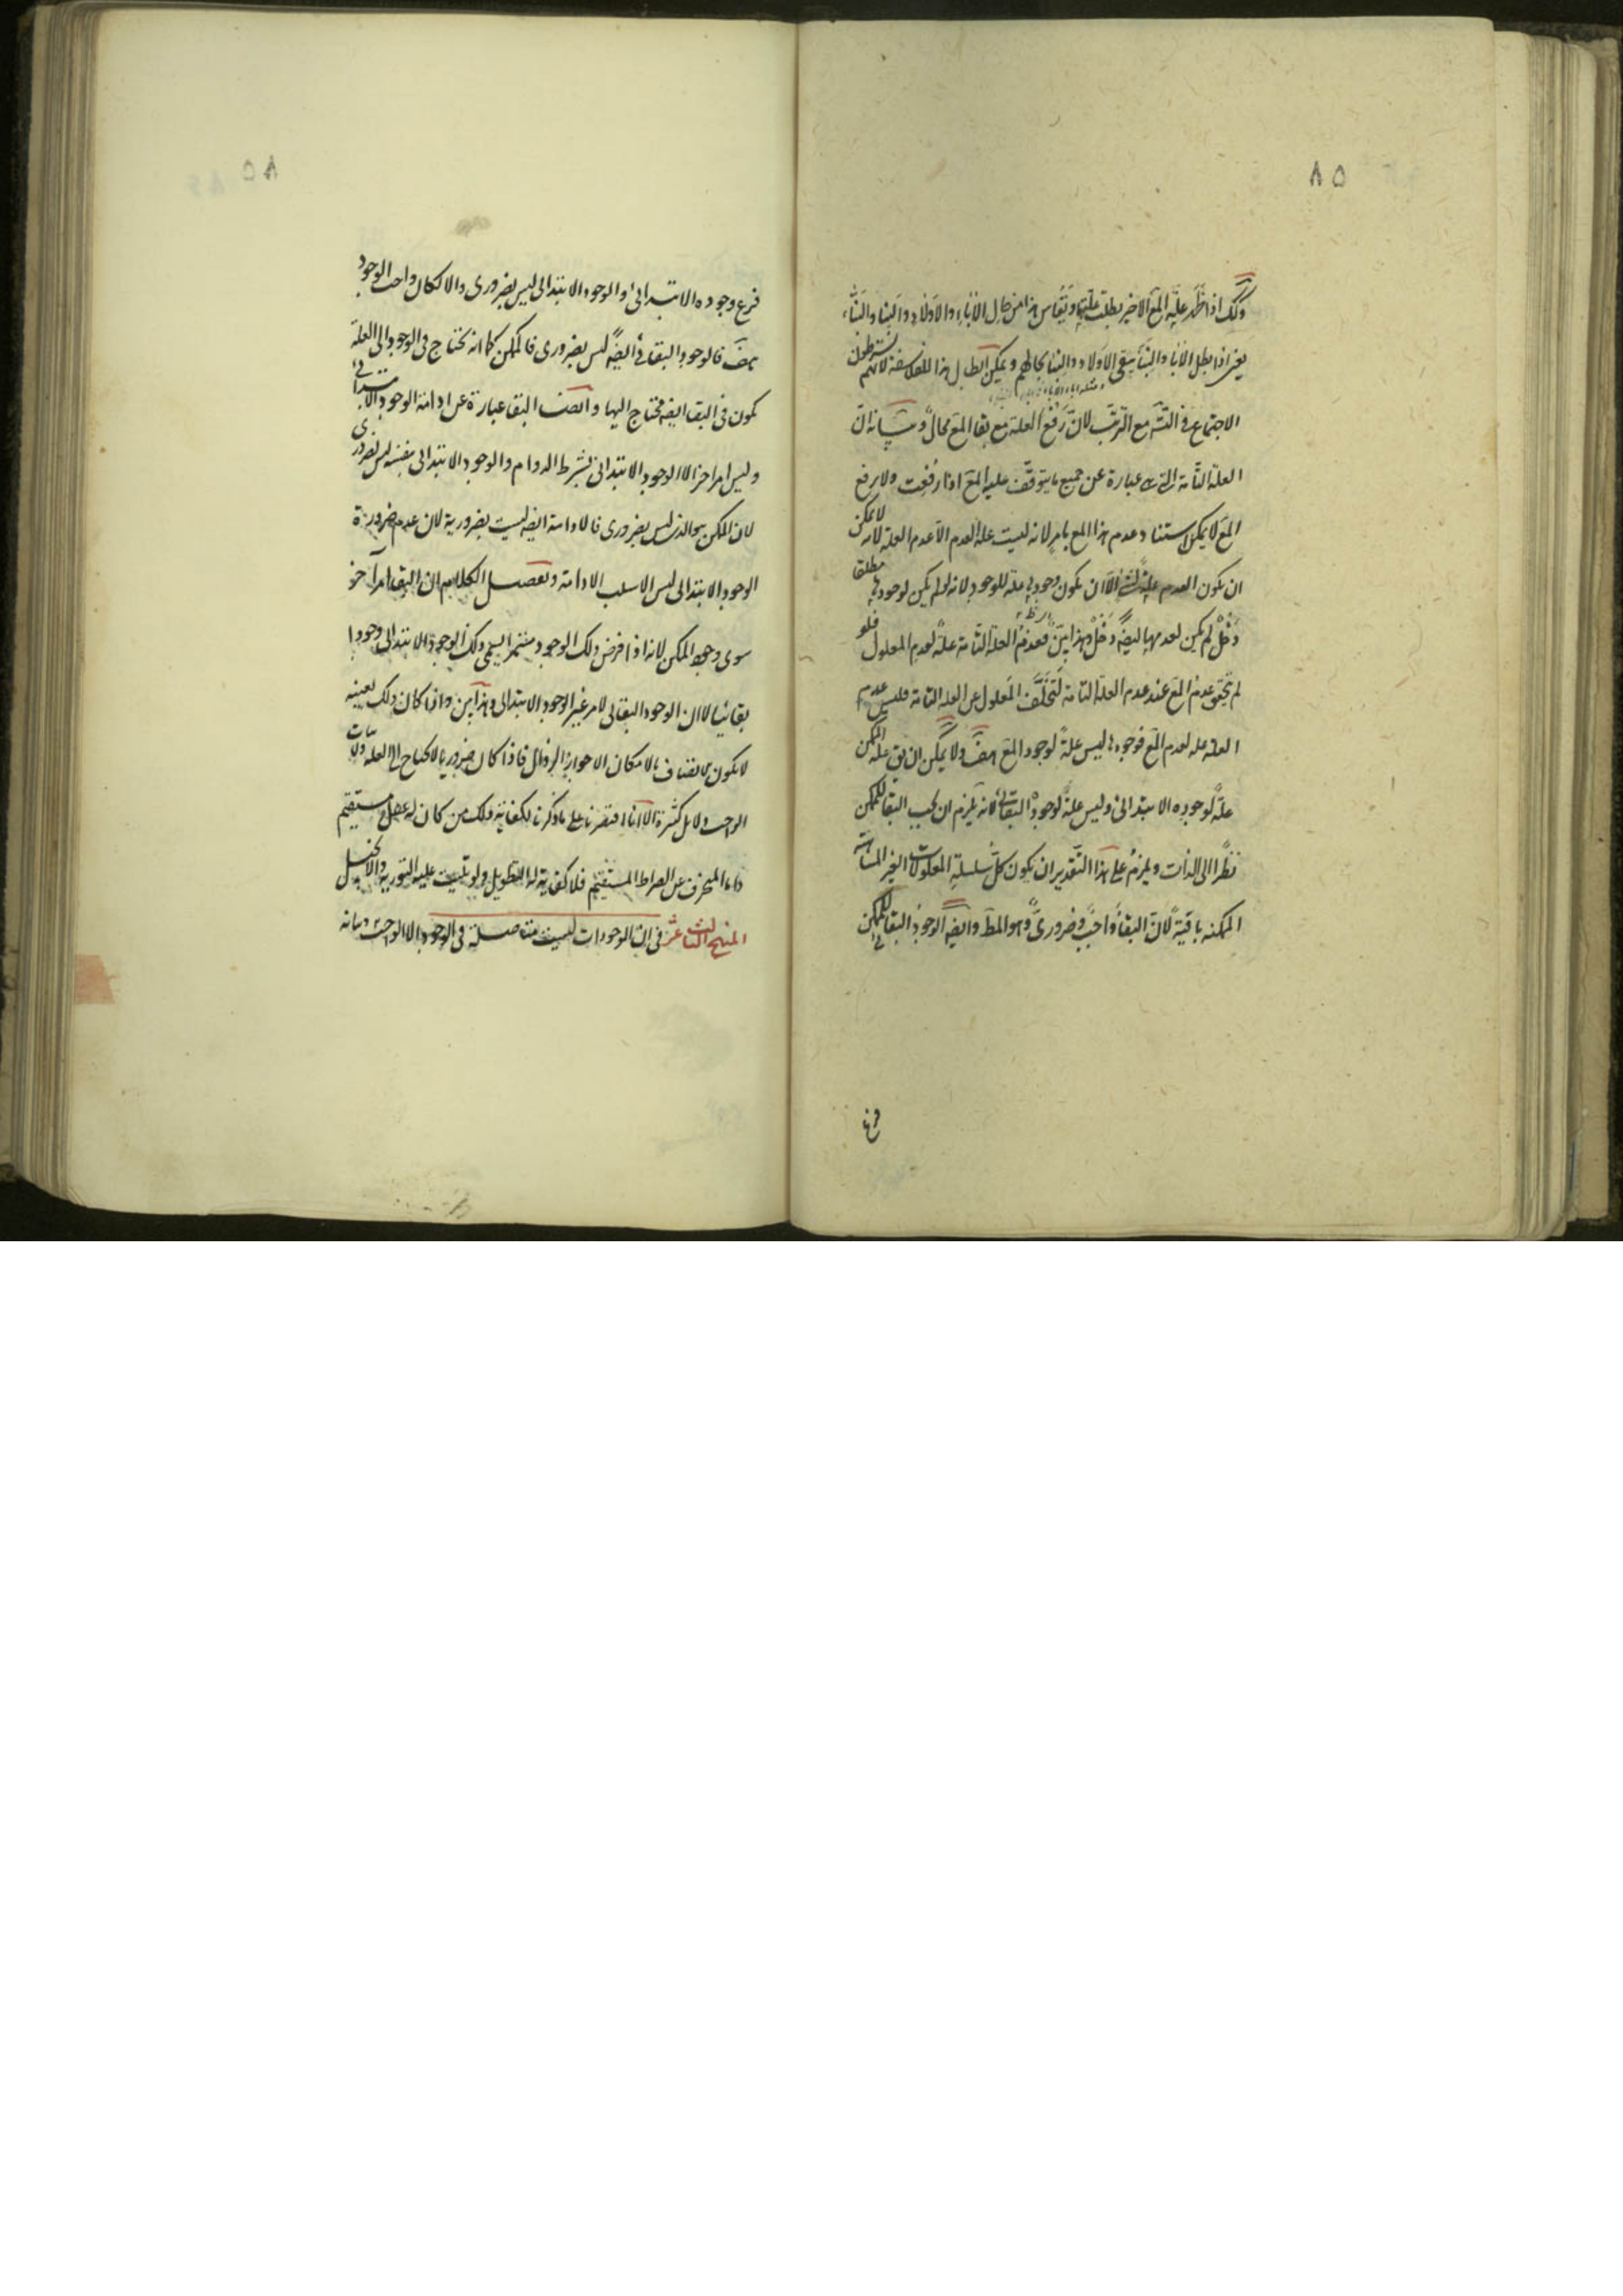 ٨٥
وكك اذا ظهر علية المع الاخير بطلت علتها ويقاس هذا من حال الاباء والاولاد والبنا والبناء
يعنى اذا بطل الابا والبنا يبقى الاولاد والبنا بحالهم ويمكن ابطال هذا للفلاسفة لانهم يشترطون
الاجتماع فى التسه مع الترتب لان رفع العلة مع بقا المع محال وبيانه ان
العلة التامة التى هى عبارة عن جميع ما يتوقف عليه المع اذا رفعت ولا رفع
المع لا يمكن استناد عدم هذا المع بامر لانه ليست علة العدم الا عدم العلة لانه لا يمكن
ان يكون العدم علة لشئ الا ان يكون وجوده علة للوجود لانه لو لم يكن لوجوده مطلقا
دخل لم يكن لعدمها ايضه دخل وهذا بين فعدم العلة التامة علة لعدم المعلول فلو
لم يتحقق عدم المع عند عدم العلة التامة لتخلف المعلول عن العلة التامة فليس عدم
العلة علة لعدم المع فوجوده ليس علة لوجود المع هف ولا يمكن ان يق علة الممكن
علة لوجوده الابتدائى وليس علة لوجوده البقائى لانه يلزم ان يجب البقا للممكن
نظرا الى الذات ويلزم على هذا التقدير ان يكون كل سلسلة المعلولات الغير المتناهية
الممكنة باقية لان البقا واجب وضرورى وهو المط وايضه الوجود البقائى للممكن
فرع
٨٥
فرع وجوده الابتدائى والوجود الابتدائى ليس بضرورى والا لكان واجب الوجود
هف فالوجود البقائى ايضه ليس بضرورى فالممكن كما انه يحتاج فى الوجود الى العلة
يكون فى البقا ايضه محتاج اليها وايضه البقا عبارة عن ادامة الوجود الابتدائى
وليس امرا اخر الا الوجود الابتدائى بشرط الدوام والوجود الابتدائى بنفسه ليس بضرورى
لان الممكن هو الذى ليس بضرورى فالادامة ايضه ليست بضرورية لان عدم ضرورة
الوجود الابتدائى ليس الا سلب الادامة وتفصيل الكلام ان البقا امر آخر
سوى وجود الممكن لانه اذا فرض ذلك الوجود مستمرا يسمى ذلك الوجود الابتدائى وجودا
بقائيا لا ان الوجود البقائى لامر غير الوجود الابتدائى وهذا بين واذا كان ذلك بعينه
لا يكون الاتصاف بالامكان الا جواز الزوال فاذا كان ضروريا لا يحتاج الى العلة ولاثبات
الواجب دلايل كثيرة الا انا اقتصرنا على ما ذكرنا لكفاية ذلك من كان له عقل مستقيم
واما المنحرف عن الصراط المستقيم فلا كفاية له التطويل ولو تليت عليه التورية والانجيل
المنهج الثالث عشر فى ان الوجودات ليست متاصلة فى الوجود الا الواجب وبيانه